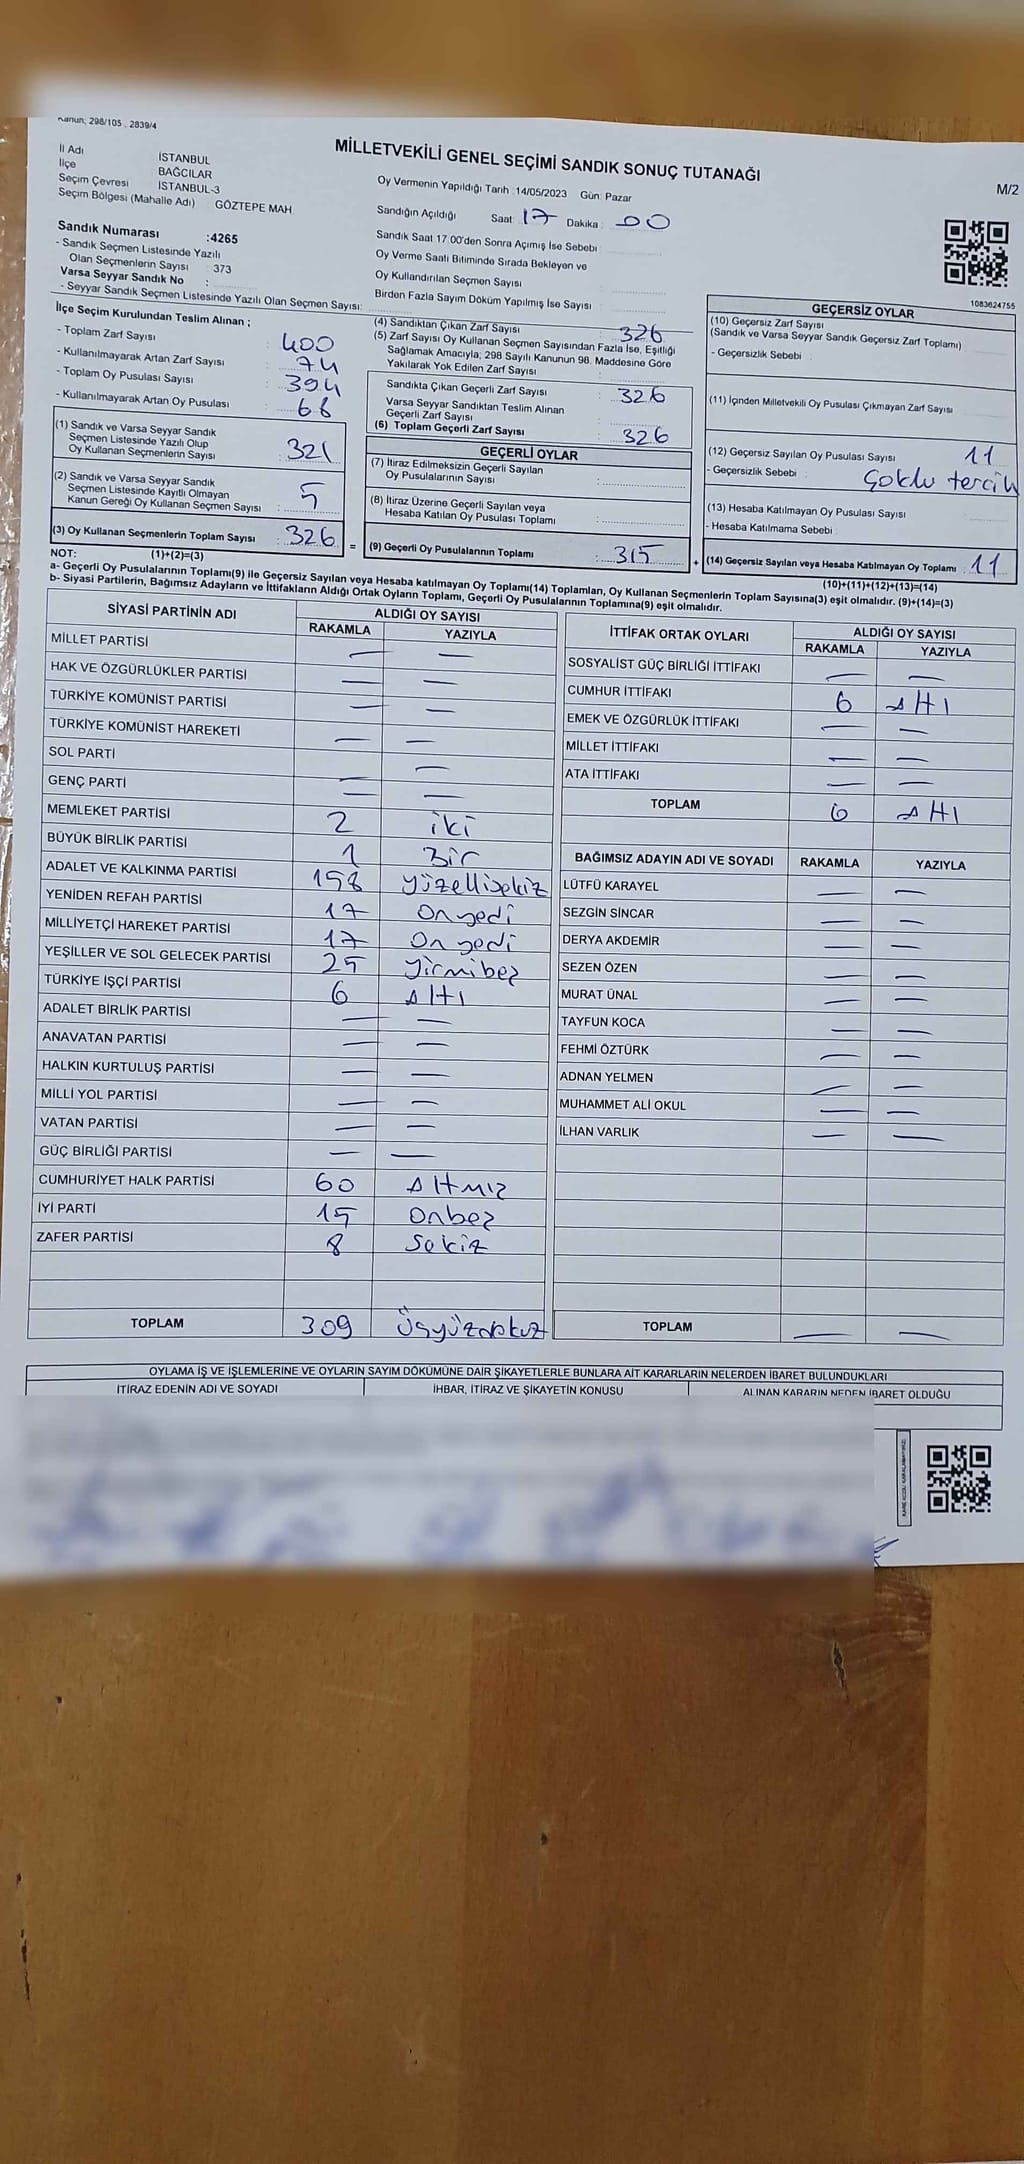 Kanun; 298/105 , 2839/4
MİLLETVEKİLİ GENEL SEÇİMİ SANDIK SONUÇ TUTANAĞI
M/2
İl Adı İSTANBUL
İlçe BAĞCILAR
Seçim Çevresi İSTANBUL-3
Seçim Bölgesi (Mahalle Adı) GÖZTEPE MAH
Oy Vermenin Yapıldığı Tarih :14/05/2023 Gün: Pazar
Sandığın Açıldığı Saat: 17 Dakika : 00
Sandık Saat 17.00'den Sonra Açılmış İse Sebebi :
Oy Verme Saati Bitiminde Sırada Bekleyen ve
Oy Kullandırılan Seçmen Sayısı :
Birden Fazla Sayım Döküm Yapılmış İse Sayısı :
Sandık Numarası :4265
- Sandık Seçmen Listesinde Yazılı
Olan Seçmenlerin Sayısı : 373
Varsa Seyyar Sandık No :
- Seyyar Sandık Seçmen Listesinde Yazılı Olan Seçmen Sayısı:
1083624755
İlçe Seçim Kurulundan Teslim Alınan ;
- Toplam Zarf Sayısı : 400
- Kullanılmayarak Artan Zarf Sayısı : 74
- Toplam Oy Pusulası Sayısı : 394
- Kullanılmayarak Artan Oy Pusulası : 68
(1) Sandık ve Varsa Seyyar Sandık
Seçmen Listesinde Yazılı Olup
Oy Kullanan Seçmenlerin Sayısı : 321
(2) Sandık ve Varsa Seyyar Sandık
Seçmen Listesinde Kayıtlı Olmayan
Kanun Gereği Oy Kullanan Seçmen Sayısı : 5
(3) Oy Kullanan Seçmenlerin Toplam Sayısı : 326 =
(1)+(2)=(3)
(4) Sandıktan Çıkan Zarf Sayısı : 326
(5) Zarf Sayısı Oy Kullanan Seçmen Sayısından Fazla İse, Eşitliği
Sağlamak Amacıyla, 298 Sayılı Kanunun 98. Maddesine Göre
Yakılarak Yok Edilen Zarf Sayısı :
Sandıkta Çıkan Geçerli Zarf Sayısı : 326
Varsa Seyyar Sandıktan Teslim Alınan
Geçerli Zarf Sayısı :
(6) Toplam Geçerli Zarf Sayısı : 326
GEÇERLİ OYLAR
(7) İtiraz Edilmeksizin Geçerli Sayılan
Oy Pusulalarının Sayısı :
(8) İtiraz Üzerine Geçerli Sayılan veya
Hesaba Katılan Oy Pusulası Toplamı :
(9) Geçerli Oy Pusulalarının Toplamı : 315 +
GEÇERSİZ OYLAR
(10) Geçersiz Zarf Sayısı
(Sandık ve Varsa Seyyar Sandık Geçersiz Zarf Toplamı) :
- Geçersizlik Sebebi :
(11) İçinden Milletvekili Oy Pusulası Çıkmayan Zarf Sayısı :
(12) Geçersiz Sayılan Oy Pusulası Sayısı : 11
- Geçersizlik Sebebi : Çoklu tercih
(13) Hesaba Katılmayan Oy Pusulası Sayısı :
- Hesaba Katılmama Sebebi :
(14) Geçersiz Sayılan veya Hesaba Katılmayan Oy Toplamı : 11
(10)+(11)+(12)+(13)=(14)
NOT:
a- Geçerli Oy Pusulalarının Toplamı(9) ile Geçersiz Sayılan veya Hesaba katılmayan Oy Toplamı(14) Toplamları, Oy Kullanan Seçmenlerin Toplam Sayısına(3) eşit olmalıdır. (9)+(14)=(3)
b- Siyasi Partilerin, Bağımsız Adayların ve İttifakların Aldığı Ortak Oyların Toplamı, Geçerli Oy Pusulalarının Toplamına(9) eşit olmalıdır.
SİYASİ PARTİNİN ADI ALDIĞI OY SAYISI
RAKAMLA YAZIYLA
MİLLET PARTİSİ — —
HAK VE ÖZGÜRLÜKLER PARTİSİ — —
TÜRKİYE KOMÜNİST PARTİSİ — —
TÜRKİYE KOMÜNİST HAREKETİ — —
SOL PARTİ — —
GENÇ PARTİ — —
MEMLEKET PARTİSİ 2 iki
BÜYÜK BİRLİK PARTİSİ 1 Bir
ADALET VE KALKINMA PARTİSİ 158 yüzellisekiz
YENİDEN REFAH PARTİSİ 17 Onyedi
MİLLİYETÇİ HAREKET PARTİSİ 17 On yedi
YEŞİLLER VE SOL GELECEK PARTİSİ 25 yirmibeş
TÜRKİYE İŞÇİ PARTİSİ 6 Altı
ADALET BİRLİK PARTİSİ — —
ANAVATAN PARTİSİ — —
HALKIN KURTULUŞ PARTİSİ — —
MİLLİ YOL PARTİSİ — —
VATAN PARTİSİ — —
GÜÇ BİRLİĞİ PARTİSİ — —
CUMHURİYET HALK PARTİSİ 60 Altmış
İYİ PARTİ 15 Onbeş
ZAFER PARTİSİ 8 Sekiz
TOPLAM 309 Üçyüzdokuz
İTTİFAK ORTAK OYLARI ALDIĞI OY SAYISI
RAKAMLA YAZIYLA
SOSYALİST GÜÇ BİRLİĞİ İTTİFAKI — —
CUMHUR İTTİFAKI 6 Altı
EMEK VE ÖZGÜRLÜK İTTİFAKI — —
MİLLET İTTİFAKI — —
ATA İTTİFAKI — —
TOPLAM 6 Altı
BAĞIMSIZ ADAYIN ADI VE SOYADI RAKAMLA YAZIYLA
LÜTFÜ KARAYEL — —
SEZGİN SİNCAR — —
DERYA AKDEMİR — —
SEZEN ÖZEN — —
MURAT ÜNAL — —
TAYFUN KOCA — —
FEHMİ ÖZTÜRK — —
ADNAN YELMEN — —
MUHAMMET ALİ OKUL — —
İLHAN VARLIK — —
TOPLAM — —
OYLAMA İŞ VE İŞLEMLERİNE VE OYLARIN SAYIM DÖKÜMÜNE DAİR ŞİKAYETLERLE BUNLARA AİT KARARLARIN NELERDEN İBARET BULUNDUKLARI
İTİRAZ EDENİN ADI VE SOYADI İHBAR, İTİRAZ VE ŞİKAYETİN KONUSU ALINAN KARARIN NEDEN İBARET OLDUĞU